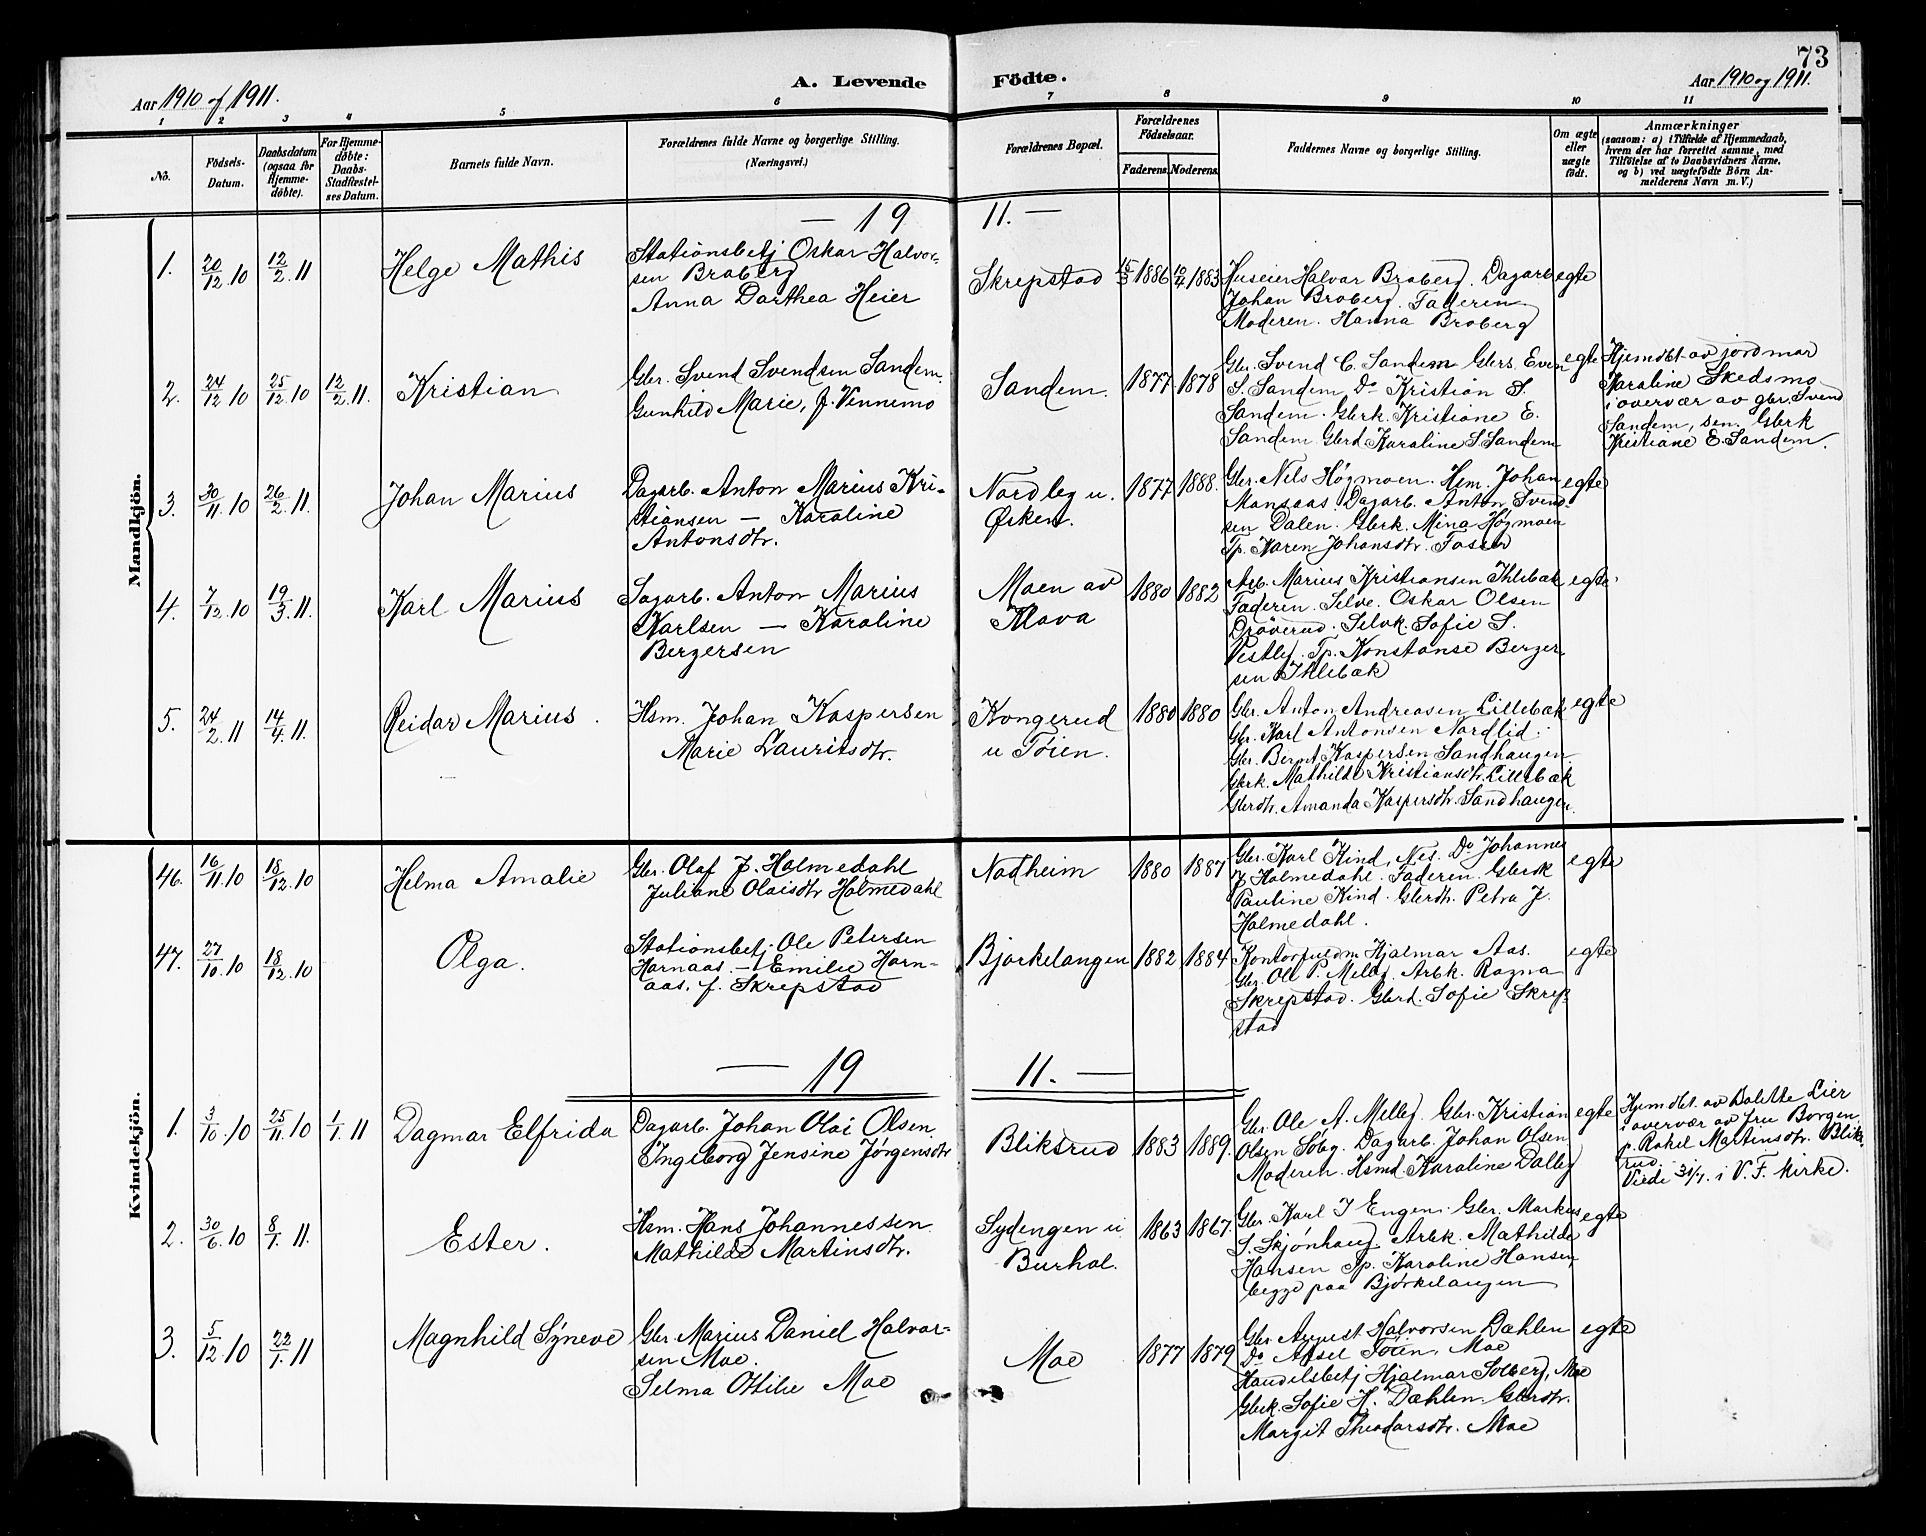 73
Aar 1910 og 1911.
A. Levende Födte.
Aar 1910 og 1911.
1 2 3 4 5 6 7 8 9 10 11
No.
Födsels-Datum.
Daabsdatum (ogsaa for Hjemme-döbte).
For Hjemme-döbte: Daabs-Stadfæstel-ses Datum.
Barnets fulde Navn.
Forældrenes fulde Navne og borgerlige Stilling.
(Næringsvei.)
Forældrenes Bopæl.
Forældrenes Födselsaar.
Faderens. Moderens.
Faddernes Navne og borgerlige Stilling.
Om ægte eller uægte födt.
Anmærkninger
(saasom: a) i Tilfælde af Hjemmedaab,
hvem der har forrettet samme, med
Tilföielse af to Daabsvidners Navne,
og b) ved uægtefödte Börn An-
melderens Navn m. V.)
Mandkjön.
— 19 11. —
1. 20/12 10 12/2 11 Helge Mathis
Stationsbetj Oskar Halvor-
sen Braberg
Anna Dorthea Heier
Skrepstad 15/3 1886 10/4 1883
Huseier Halvar Braberg. Dagarb
Johan Broberg. Faderen
Moderen. Hanna Broberg
egte
2. 24/12 10 25/12 10 12/2 11. Kristian
Gbr. Svend Svendsen Sandem.
Gunhild Marie, f. Vennemo
Sandem. 1877 1878
Gbr. Svend C. Sandem Gbrs. Even
S. Sandem Do Kristian S.
Sandem. Gbrk. Kristiane E.
Sandem. Gbrd Karoline S. Sandem
egte
Hjemdbt. av jordmor
Karoline Skedsmo
i overvær av gbr. Svend
Sandem, sen. Gbrk
Kristiane E. Sandem.
3. 30/11 10 26/2 11. Johan Marius
Dagarb. Anton Marius Kri-
stiansen — Karoline
Antonsdtr.
Nordleg u.
Ørken.
1877 1888.
Gbr. Nils Høgmoen. Hsm. Johan
Mansaas Dagarb. Anton Svend-
sen Dalen. Gbrk. Mina Høgmoen
Tp. Karen Johansdtr. Fosser
egte
4. 7/12 10 19/3 11. Karl Marius
Sagarb. Anton Marius
Karlsen — Karoline
Bergersen
Moen av
Mova
1880 1882
Arb. Marius Kristiansen Ihlebæk
Faderen. Selve. Oskar Olsen
Drøverud. Selvk. Sofie S.
Vestly. Tp. Konstanse Berger-
sen Ihlebæk
egte
5. 24/2 11 14/4 11. Reidar Marius.
Hsm. Johan Kaspersen
Marie Lauritsdtr.
Kongerud
u Töien.
1880 1880
Gbr. Anton Andreasen Lillebæk
Gbr. Karl Antonsen Nordlid.
Gbr. Bernt Kaspersen Sandhaugen.
Gbrk. Mathilde Kristiansdtr. Lillebæk
Gbrdtr. Amanda Kaspersdtr. Sandhaugen.
egte
Kvindekjön.
46. 16/11 10 18/12 10 Helma Amalie
Gbr. Olaf J. Holmedahl
Juliane Olaisdtr Holmedahl
Nodheim 1880 1887
Gbr. Karl Kind, Nes. Do Johannes
J Holmedahl. Faderen. Gbrk
Pauline Kind. Gbrdtr. Petra J.
Holmedahl.
egte
47. 27/10 10 18/12 10 Olga.
Stationsbetj. Ole Petersen
Harnaas. — Emilie Harn-
aas, f. Skrepstad
Bjørkelangen 1882 1884
Kontorfuldm Hjalmar Aas.
Gbr. Ole P. Melby. Arbk. Ragna
Skrepstad. Gbrd. Sofie Skrep-
stad
egte
— 19 11. —
1. 3/10 10 25/11 10 1/1 11 Dagmar Elfrida
Dagarb. Johan Olai Olsen.
Ingeborg Jensine Jørgensdtr
Bliksrud 1883 1889.
Gbr. Ole A. Melby. Gbr. Kristian
Olsen Soby. Dagarb. Johan Olsen
Moderen. Hsmd. Karoline Dalby
egte
Hjemdbt. av Dolette Lier
i overvær av fru Borgen
p. Rakel Martinsdtr. Blik-
rud.
Viede 31/7. i V. F. kirke.
2. 30/6 10 8/1 11. Ester.
Hsm. Hans Johannessen
Mathilde Martinsdtr.
Sydengen u
Burhol.
1863 1867.
Gbr. Karl J Engen. Gbr. Markus
S. Skjønhaug. Arbk. Mathilde
Hansen Tp. Karoline Hansen,
begge paa Bjørkelangen
egte
3. 5/12 10 22/1 11 Magnhild Syneve
Gbr. Marius Daniel Halvor-
sen Moe.
Selma Ottilie Moe
Moe 1877 1879
Gbr. August Halvorsen Dæhlen
Do Aksel Töien, Moe
Handelsbetj Hjalmar Solberg, Moe
Gbrk. Sofie H. Dæhlen. Gbrdtr.
Margit Theodorsdtr. Moe
egte